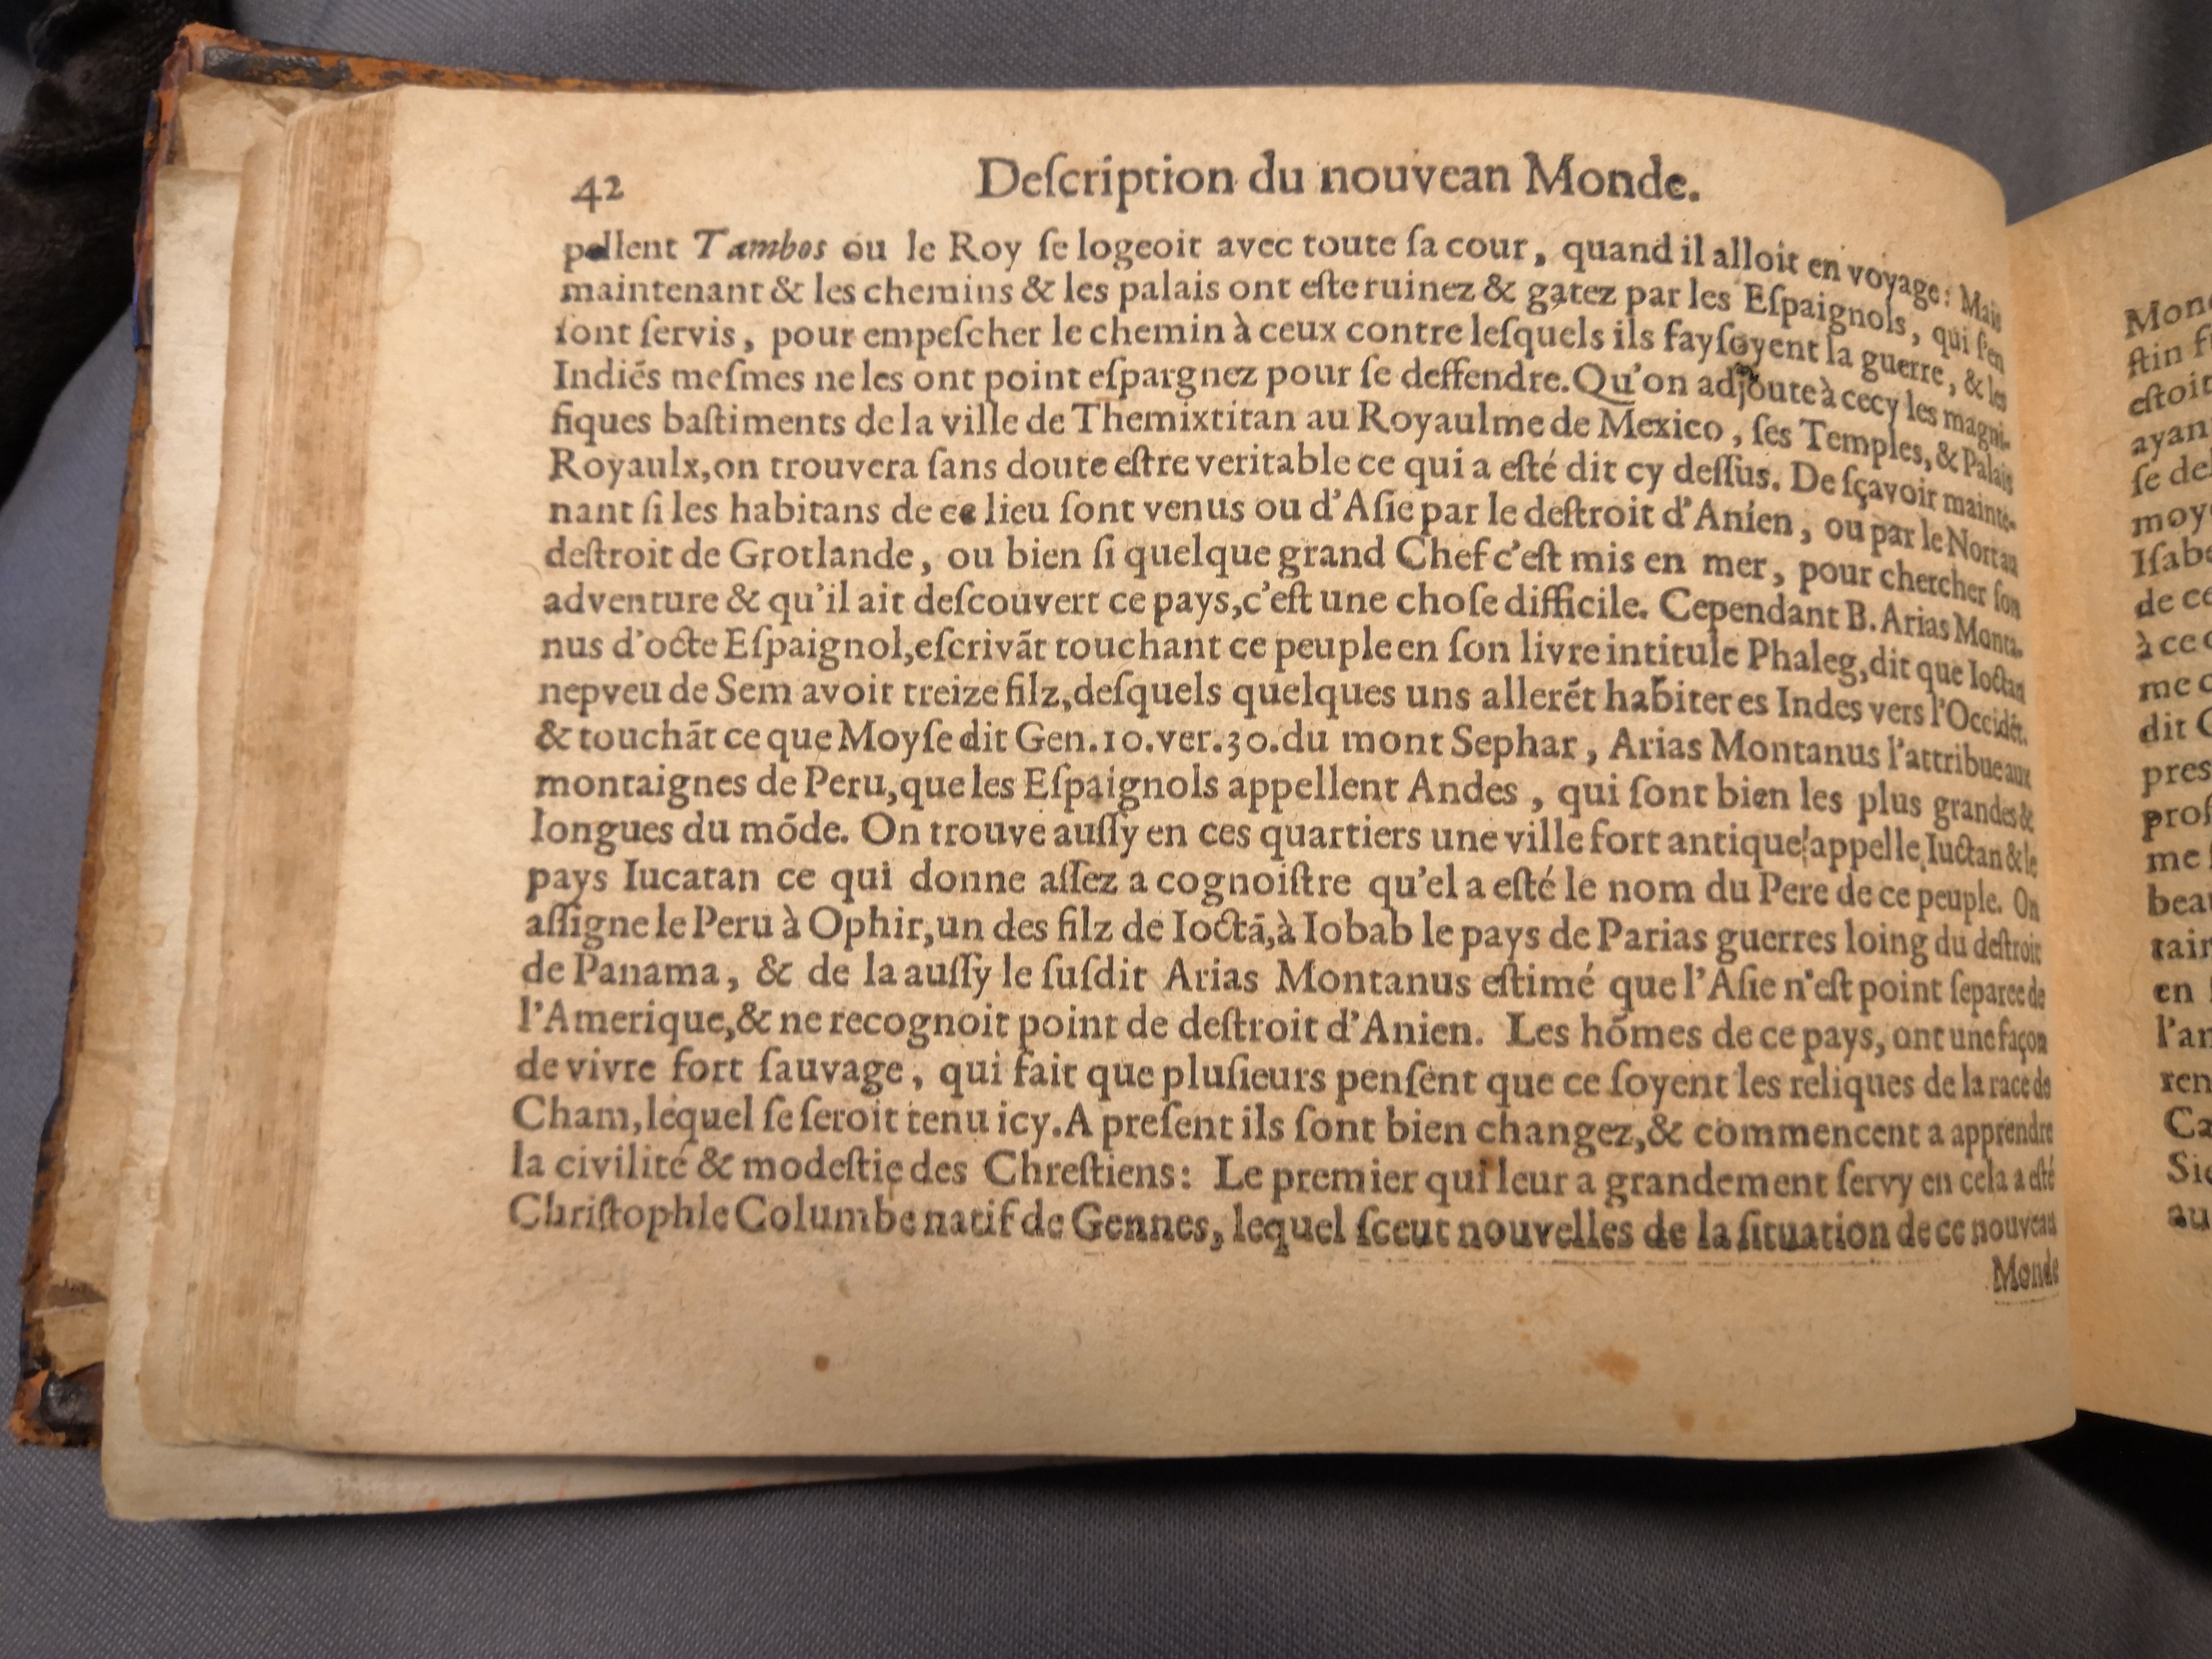 42 Deſcription du nouvean Monde.
pellent Tambos ou le Roy ſe logeoit avec toute ſa cour, quand il alloit en voyage: Mais
maintenant & les chemins & les palais ont eſte ruinez & gatez par les Eſpaignols, qui ſ'en
ſont ſervis, pour empeſcher le chemin à ceux contre leſquels ils fayſoyent la guerre, & les
Indiẽs meſmes ne les ont point eſpargnez pour ſe deffendre. Qu'on adjoute à cecy les magni-
fiques baſtiments de la ville de Themixtitan au Royaulme de Mexico, ſes Temples, & Palais
Royaulx, on trouvera ſans doute eſtre veritable ce qui a eſté dit cy deſſus. De ſçavoir mainte-
nant ſi les habitans de ce lieu ſont venus ou d'Aſie par le deſtroit d'Anien, ou par le Nort au
deſtroit de Grotlande, ou bien ſi quelque grand Chef c'eſt mis en mer, pour chercher ſon
adventure & qu'il ait deſcouvert ce pays, c'eſt une choſe difficile. Cependant B. Arias Monta-
nus d'octe Eſpaignol, eſcrivãt touchant ce peuple en ſon livre intitule Phaleg, dit que Ioctan
nepveu de Sem avoit treize filz, deſquels quelques uns allerẽt habiter es Indes vers l'Occidẽt.
& touchãt ce que Moyſe dit Gen. 10. ver. 30. du mont Sephar, Arias Montanus l'attribue aux
montaignes de Peru, que les Eſpaignols appellent Andes, qui ſont bien les plus grandes &
longues du mõde. On trouve auſſy en ces quartiers une ville fort antique appelle Iuctan & le
pays Iucatan ce qui donne aſſez a cognoiſtre qu'el a eſté le nom du Pere de ce peuple. On
aſſigne le Peru à Ophir, un des filz de Ioctã, à Iobab le pays de Parias guerres loing du deſtroit
de Panama, & de la auſſy le ſuſdit Arias Montanus eſtimé que l'Aſie n'eſt point ſeparee de
l'Amerique, & ne recognoit point de deſtroit d'Anien. Les hõmes de ce pays, ont une façon
de vivre fort ſauvage, qui fait que pluſieurs penſent que ce ſoyent les reliques de la race de
Cham, lequel ſe ſeroit tenu icy. A preſent ils ſont bien changez, & commencent a apprendre
la civilité & modeſtie des Chreſtiens: Le premier qui leur a grandement ſervy en cela a eſté
Chriſtophle Columbe natif de Gennes, lequel ſceut nouvelles de la ſituation de ce nouveau
Monde